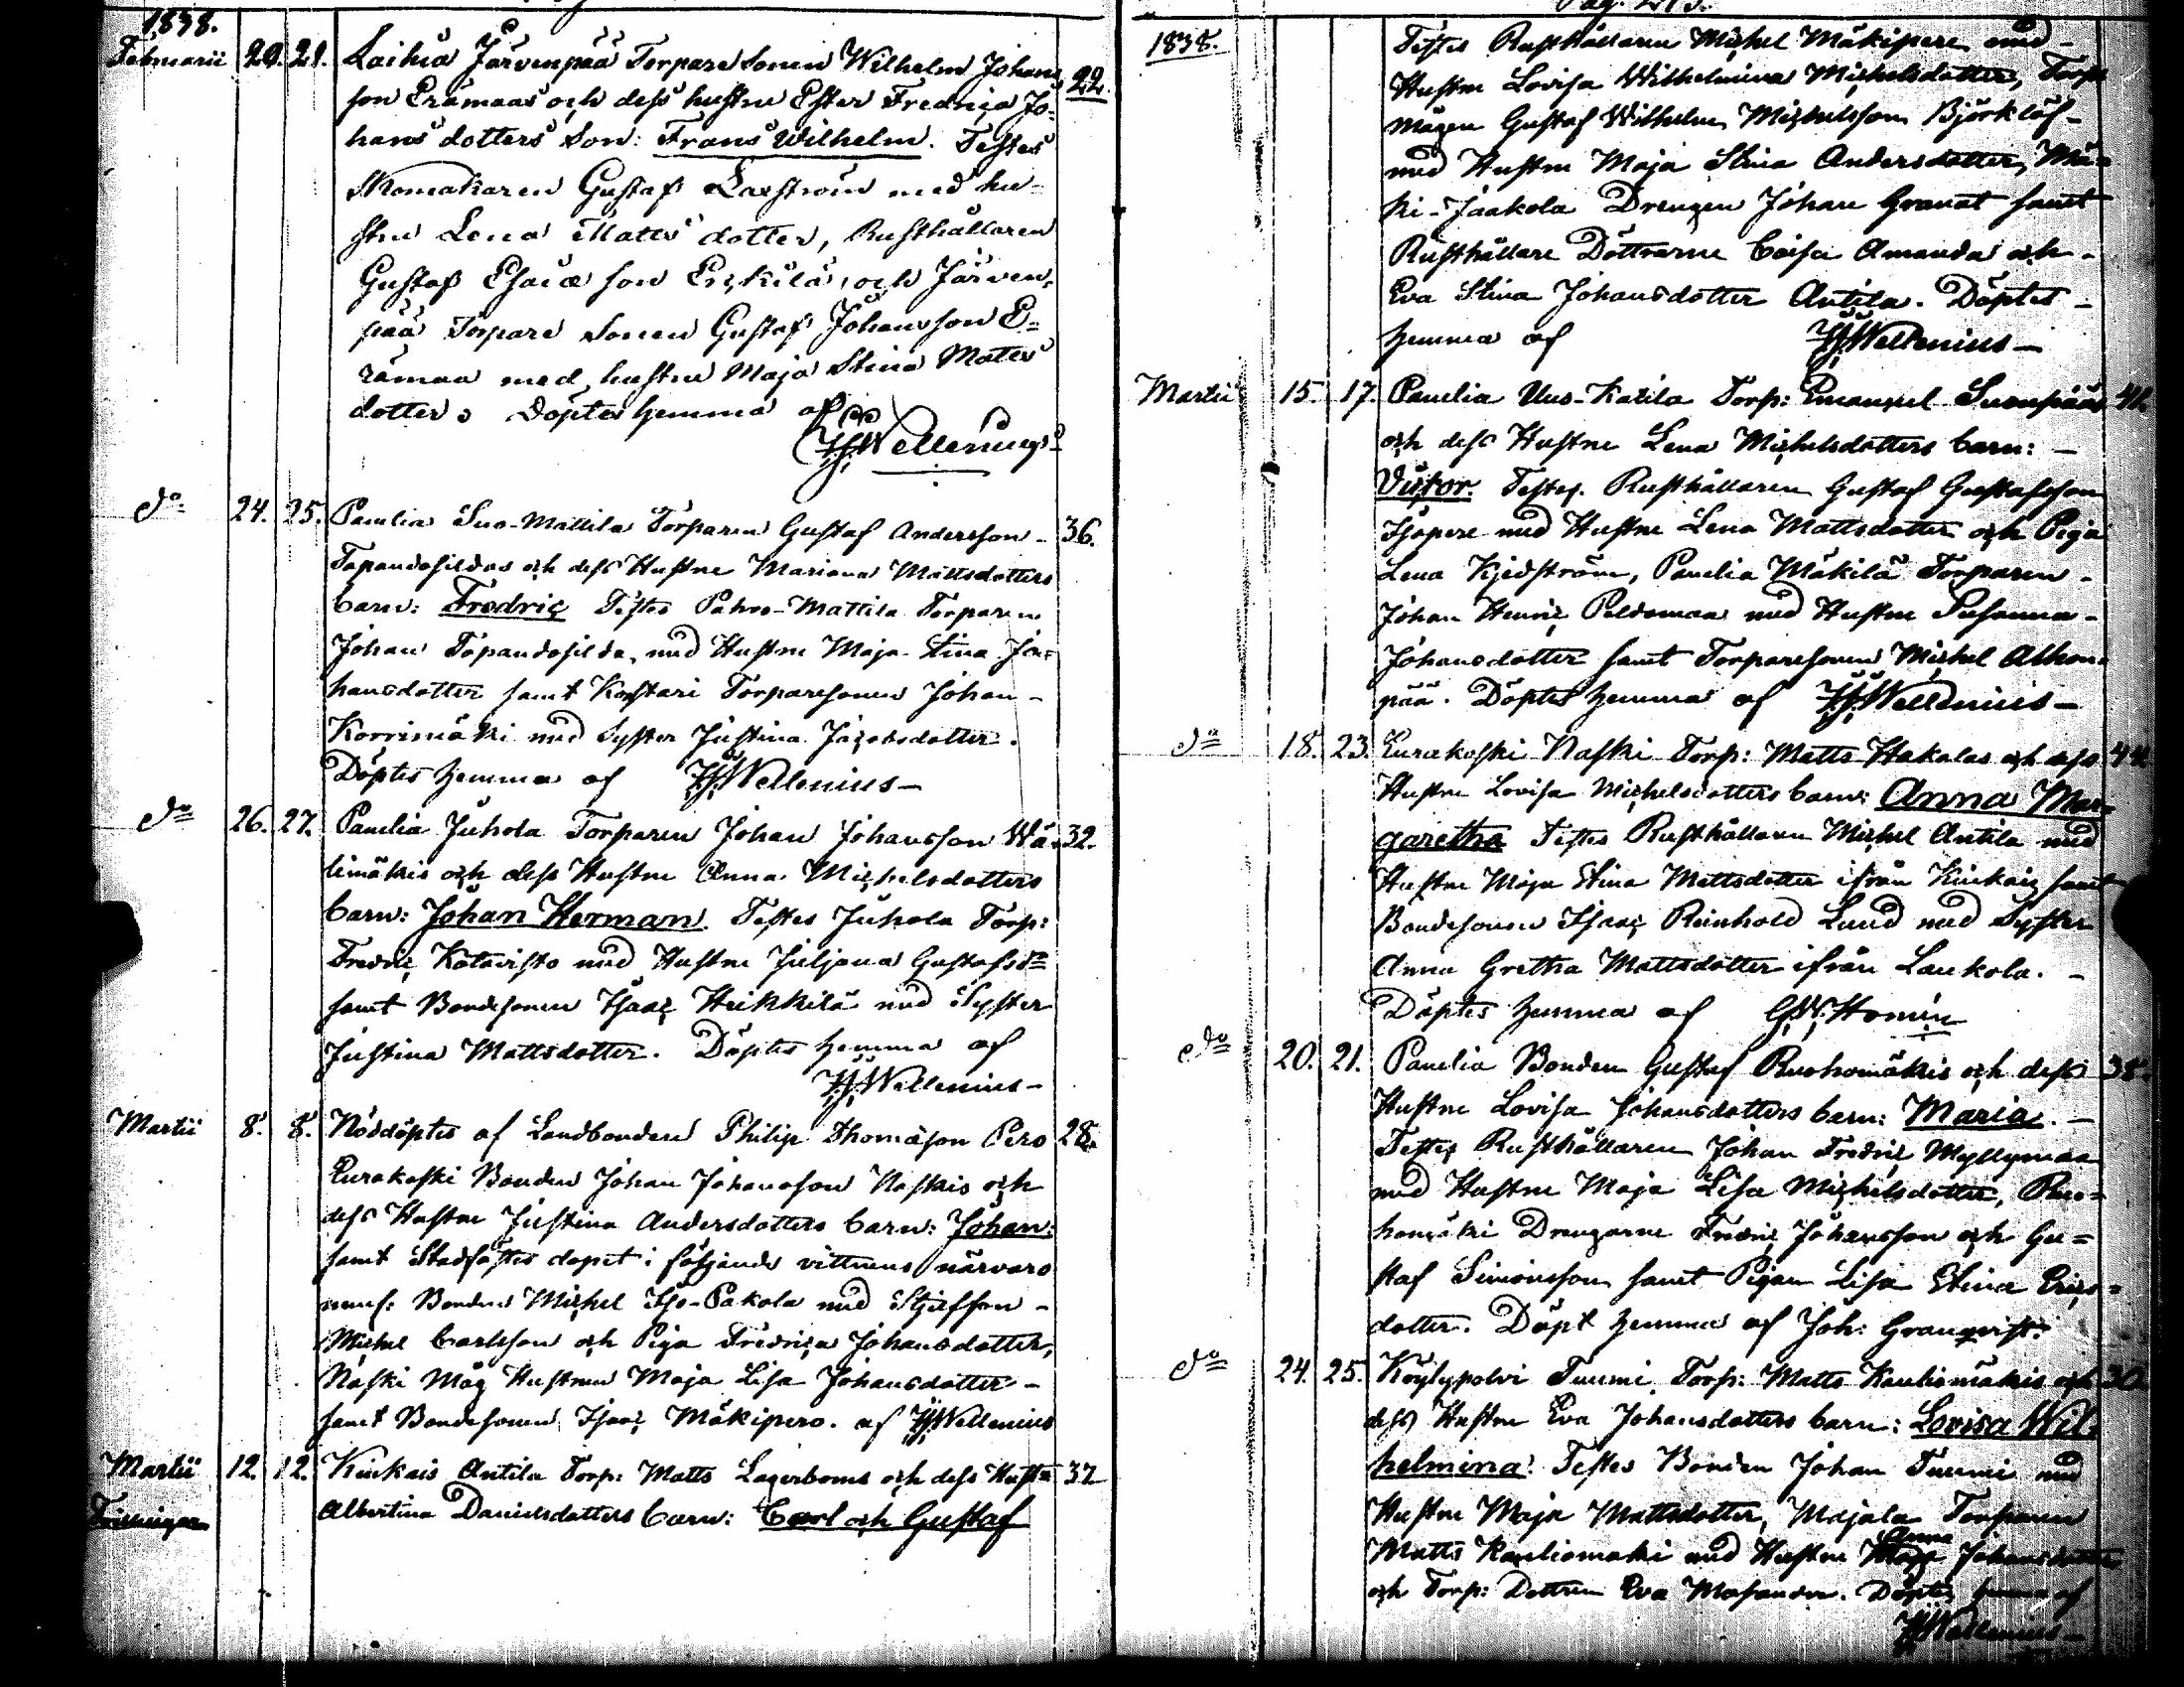 1838.
Februarii 20. 21. Laihia Järvenpää Torpare Sonen Wilhelm Johans 22.
son Erämaas och dess hustru Ester Fredrica Jo-
hans dotters Son: Frans Wilhelm. Testes
Skomakaren Gustaf Laxström med hu-
stru Lena Matts dotter, Rusthållaren
Gustaf Esaiæ son Erkilä, och Järven-
pää Torpare Sonen Gustaf Johansson E=
rämaa med hustru Maja Stina Matts
dotter. Döptes hemma af
HJWellenius
do 24. 25. Panelia Suo-Mattila Torparen Gustaf Andersson 36.
och dess Hustru Mariana Mattsdotters
barn: Fredric Testes Mattila Torparen
Johan med Hustru Maja Stina Jo-
hansdotter samt Torparesonen Johan
Korrimäki med Syster Justina Jacobsdotter.
Döptes hemma af HJWellenius
do 26. 27. Panelia Juhola Torparen Johan Johansson Wä- 32.
limäkis och dess Hustru Anna Michelsdotters
barn: Johan Herman. Testes Juhola Torp:
Fredric Katavisto med Hustru Juljana Gustafsdr
samt Bondesonen Isaac Heikkilä med Syster
Justina Mattsdotter. Döptes hemma af
HJWellenius
Martii 8. 8. Nöddöptes af Landbonden Philip Thomasson Pero 28.
Eurakoski Bonden Johan Johansson Naskis och
dess Hustru Justina Andersdotters barn: Johan:
samt Stadfästes dopet i följande vittnens närvaro
Bonden Michel Iso-Pakola med
Michel Carlsson och Piga Fredrica Johansdotter,
Naski Måg Hustrun Maja Lisa Johansdotter
samt Bondesonen Isaac Mäkipere. af HJWellenius
Martii 12. 12. Kiukais Antila Torp: Matts Lagerboms och dess Hustru 37
Albertina Danielsdotters barn: Carl och Gustaf
1838.
Testes Rusthållaren Michel Mäkipere med
Hustru Lovisa Wilhelmina Michelsdotter, Torp
mågen Gustaf Wilhelm Michelsson Björklöf
med Hustru Maja Stina Andersdotter, Mä-
ki-Jaakola Drengen Johan Granat samt
Rusthållare Döttrarne Caisa Amanda och
Eva Stina Johansdotter Antila. Döptes
hemma af HJWellenius
Martii 15. 17. Panelia Uus-Katila Torp: Emanuel Suonpääs 41.
och dess Hustru Lena Michelsdotters barn:
Victor. Testes. Rusthållaren Gustaf Gustafsson
Isopere med Hustru Lena Mattsdotter och Piga
Lena Kjedström, Panelia Mäkilä Torparen
Johan Henric Peldomaa med Hustru Susanna
Johansdotter samt Torparesonen Michel Alhon-
pää. Döptes hemma af HJWellenius
do 18. 23. Eurakoski Naski Torp: Matts Hakalas och dess 44.
Hustru Lovisa Michelsdotters barn: Anna Mar-
garetha Testes Rusthållaren Michel Antila med
Hustru Maja Stina Mattsdotter ifrån Kiukais samt
Bondesonen Isaac Reinhold Lund med Syster
Anna Gretha Mattsdotter ifrån Laukola.
Döptes hemma af GW. Homén
do 20. 21. Panelia Bonden Gustaf Ruohomäkis och dess 38.
Hustru Lovisa Johansdotters barn: Maria.
Testes Rusthållaren Johan Fredric Myllymaa
med Hustru Maja Lisa Michelsdotter, Ruo-
homäki Drengarne Fredric Johansson och Gu=
staf Simonsson samt Pigan Lisa Stina Erics-
dotter. Döpt hemma af Joh: Granqvist.
do 24. 25. Köylypolvi Tuumi Torp: Matts Kauliomäkis och 30.
dess Hustru Eva Johansdotters barn: Lovisa Wil-
helmina. Testes Bonden Johan Tuumi med
Hustru Maja Mattsdotter, Majala Torparen
Matts Kauliomäki med Hustru Anna Johansdotter
och Torp: Dottren Eva Masander. Döptes hemma af
HJWellenius